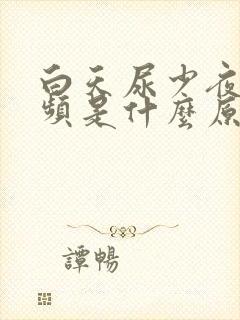 白天尿少夜
頻是什麼原
譚暢